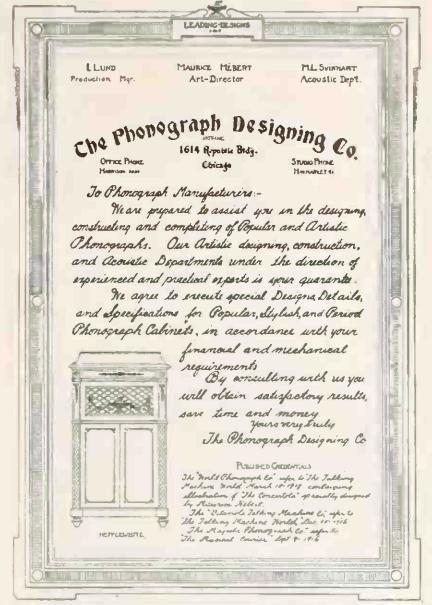 LEADING DESIGNS
I. LUND
Production Mgr.
MAURICE HÉBERT
Art-Director
M.L. SVINHART
Acoustic Dept.
The Phonograph Designing Co.
1614 Republic Bldg.
Chicago
OFFICE PHONE
HARRISON
STUDIO PHONE
HAYMARKET
To Phonograph Manufacturers:-
We are prepared to assist you in the designing,
constructing and completing of Popular and Artistic
Phonographs. Our Artistic designing, construction,
and Acoustic Departments under the direction of
experienced and practical experts is your guarantee.
We agree to execute special Designs, Details,
and Specifications for Popular, Stylish, and Period
Phonograph Cabinets, in accordance with your
financial and mechanical
requirements
By consulting with us you
will obtain satisfactory results,
save time and money
Yours very truly
The Phonograph Designing Co
HEPPLEWHITE
PUBLISHED CREDENTIALS
The "World Phonograph Co" refer to The Talking
Machine World March 15-1917 containing
illustration of "The Concertola" specially designed
by Maurice Hébert.
The Talking Machine Co refer to
The Talking Machine World, Dec 15-1916
The "Majestic Phonograph Co" refer to
The Musical Courier Sept 9-1916